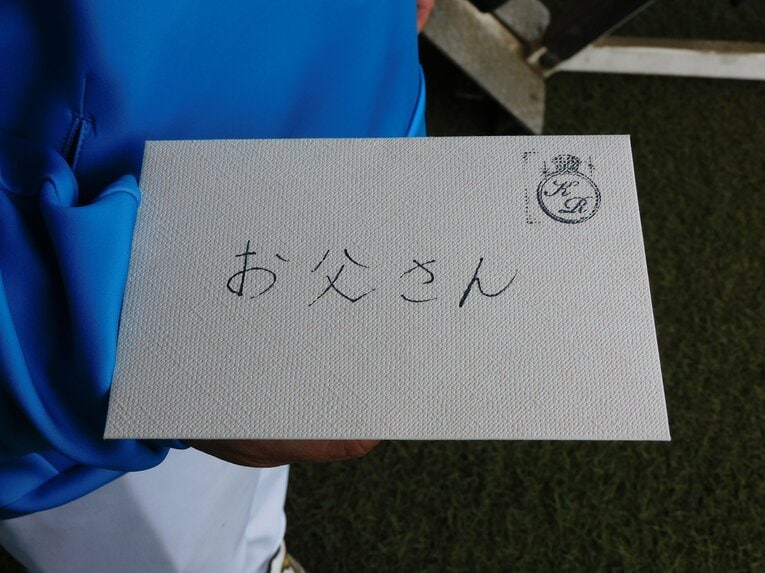 KR
お父さん